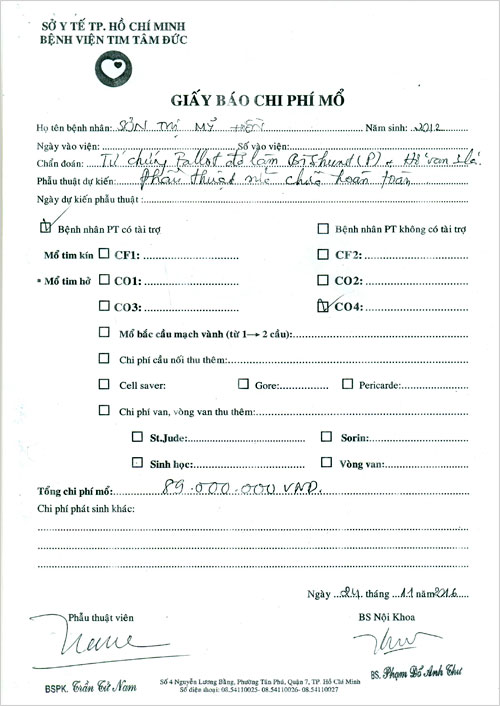 SỞ Y TẾ TP. HỒ CHÍ MINH
BỆNH VIỆN TIM TÂM ĐỨC
GIẤY BÁO CHI PHÍ MỔ
Họ tên bệnh nhân: SƠN THỊ MỸ HIỀN Năm sinh: 2012
Ngày vào viện: Số vào viện:
Chẩn đoán: Tứ chứng Fallot đã làm BTShunt (P) + Hở van 3 lá.
Phẫu thuật dự kiến: phẫu thuật sửa chữa hoàn toàn
Ngày dự kiến phẫu thuật :
Bệnh nhân PT có tài trợ Bệnh nhân PT không có tài trợ
Mổ tim kín CF1: CF2:
Mổ tim hở CO1: CO2:
CO3: CO4:
Mổ bắc cầu mạch vành (từ 1→ 2 cầu):
Chi phí cầu nối thu thêm:
Cell saver: Gore: Pericarde:
Chi phí van, vòng van thu thêm:
St.Jude: Sorin:
Sinh học: Vòng van:
Tổng chi phí mổ: 89.000.000 VND.
Chi phí phát sinh khác:
Ngày 24 tháng 11 năm 2016
Phẫu thuật viên BS Nội Khoa
BSPK. Trần Tử Nam BS. Phạm Đỗ Anh Thư
Số 4 Nguyễn Lương Bằng, Phường Tân Phú, Quận 7, TP. Hồ Chí Minh
Số điện thoại: 08.54110025- 08.54110026- 08.54110027